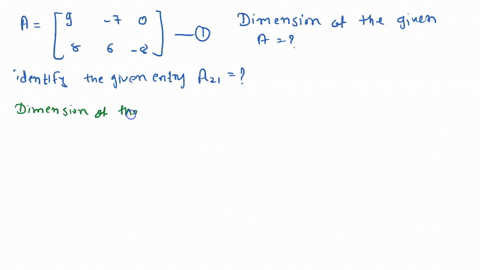 A = [ 9 -7 0
8 6 -8 ] — ①
Dimension of the given
A = ?
identify the given entry A21 = ?
Dimension of the